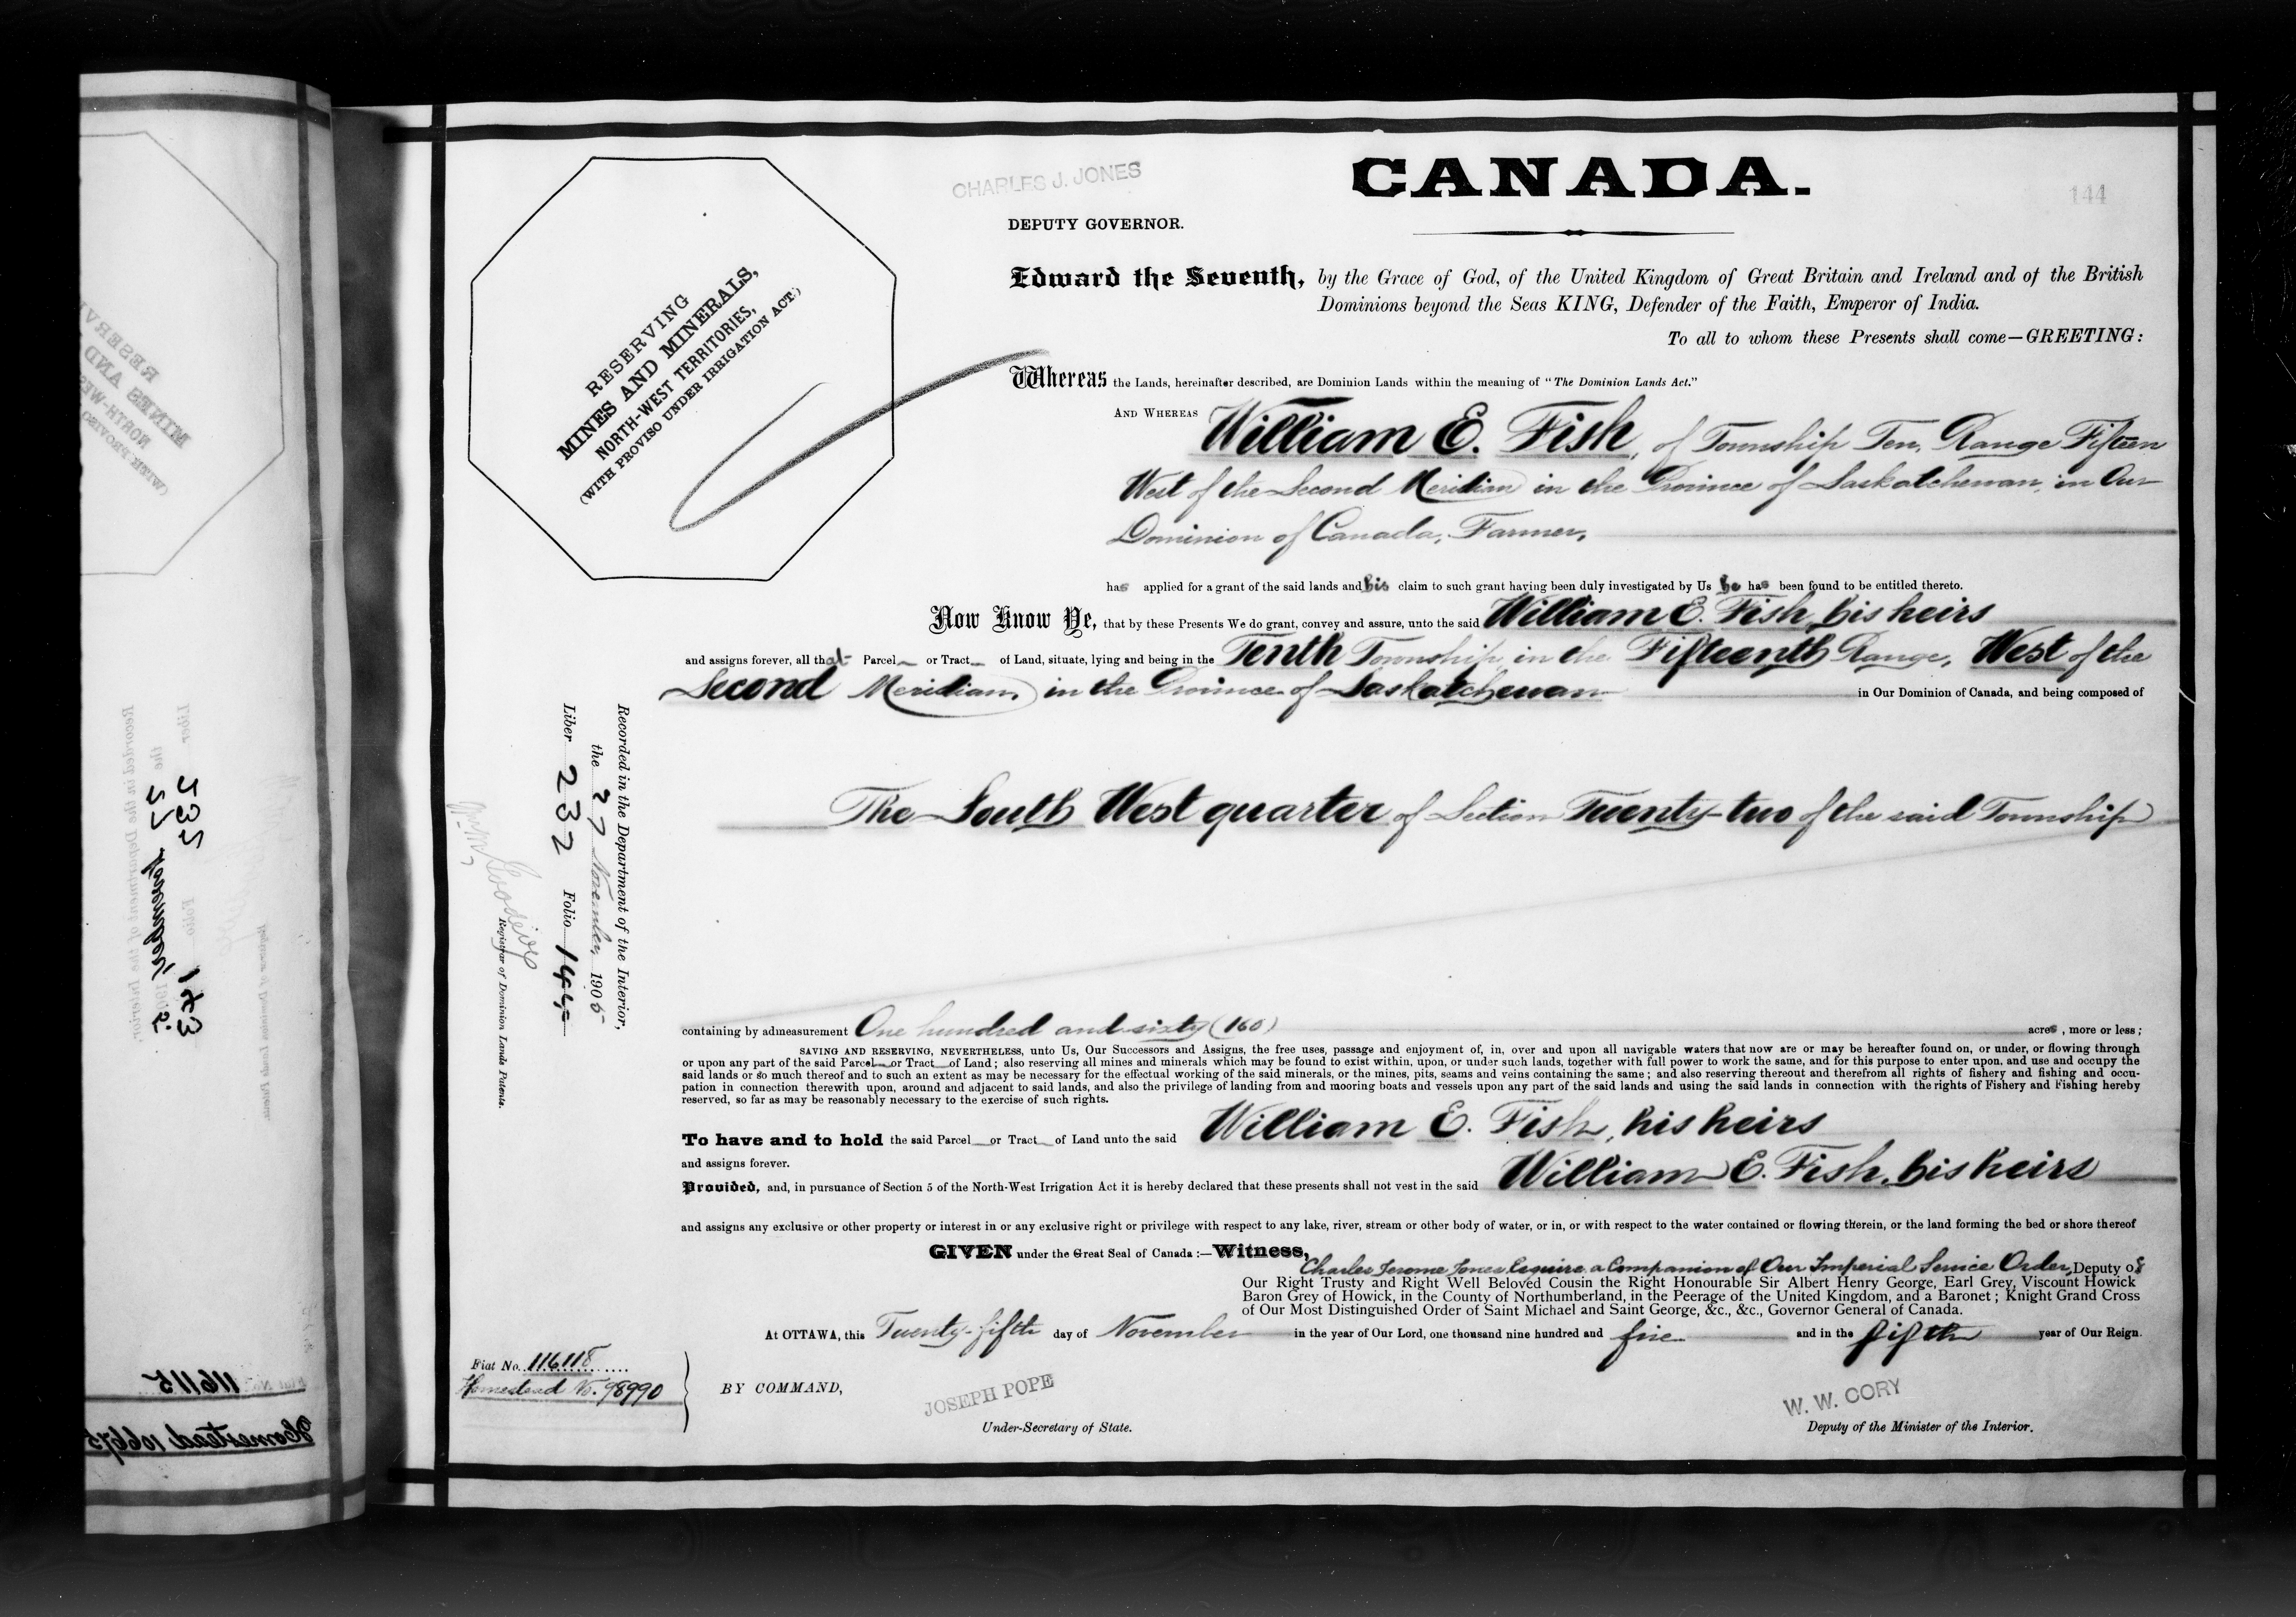 CHARLES J. JONES
CANADA.
144
DEPUTY GOVERNOR.
RESERVING
MINES AND MINERALS,
NORTH-WEST TERRITORIES,
(WITH PROVISO UNDER IRRIGATION ACT.)
Edward the Seventh, by the Grace of God, of the United Kingdom of Great Britain and Ireland and of the British
Dominions beyond the Seas KING, Defender of the Faith, Emperor of India.
To all to whom these Presents shall come—GREETING:
Whereas the Lands, hereinafter described, are Dominion Lands within the meaning of "The Dominion Lands Act."
AND WHEREAS William E. Fish, of Township Ten, Range Fifteen
West of the Second Meridian in the Province of Saskatchewan, in Our
Dominion of Canada, Farmer,
has applied for a grant of the said lands and his claim to such grant having been duly investigated by Us he has been found to be entitled thereto.
Now Know Ye, that by these Presents We do grant, convey and assure, unto the said William E. Fish, his heirs
and assigns forever, all that Parcel or Tract of Land, situate, lying and being in the Tenth Township, in the Fifteenth Range, West of the
Second Meridian, in the Province of Saskatchewan in Our Dominion of Canada, and being composed of
The South West quarter of Section Twenty-two of the said Township
containing by admeasurement One hundred and sixty (160) acres, more or less;
SAVING AND RESERVING, NEVERTHELESS, unto Us, Our Successors and Assigns, the free uses, passage and enjoyment of, in, over and upon all navigable waters that now are or may be hereafter found on, or under, or flowing through
or upon any part of the said Parcel or Tract of Land; also reserving all mines and minerals which may be found to exist within, upon, or under such lands, together with full power to work the same, and for this purpose to enter upon, and use and occupy the
said lands or so much thereof and to such an extent as may be necessary for the effectual working of the said minerals, or the mines, pits, seams and veins containing the same; and also reserving thereout and therefrom all rights of fishery and fishing and occu-
pation in connection therewith upon, around and adjacent to said lands, and also the privilege of landing from and mooring boats and vessels upon any part of the said lands and using the said lands in connection with the rights of Fishery and Fishing hereby
reserved, so far as may be reasonably necessary to the exercise of such rights.
To have and to hold the said Parcel or Tract of Land unto the said William E. Fish, his heirs
and assigns forever.
Provided, and, in pursuance of Section 5 of the North-West Irrigation Act it is hereby declared that these presents shall not vest in the said William E. Fish, his heirs
and assigns any exclusive or other property or interest in or any exclusive right or privilege with respect to any lake, river, stream or other body of water, or in, or with respect to the water contained or flowing therein, or the land forming the bed or shore thereof
GIVEN under the Great Seal of Canada:—Witness,
Charles Jerome Jones Esquire a Companion of Our Imperial Service Order, Deputy of
Our Right Trusty and Right Well Beloved Cousin the Right Honourable Sir Albert Henry George, Earl Grey, Viscount Howick
Baron Grey of Howick, in the County of Northumberland, in the Peerage of the United Kingdom, and a Baronet; Knight Grand Cross
of Our Most Distinguished Order of Saint Michael and Saint George, &c., &c., Governor General of Canada.
At OTTAWA, this Twenty-fifth day of November in the year of Our Lord, one thousand nine hundred and five and in the fifth year of Our Reign.
Fiat No. 116118
Homestead No. 98990
BY COMMAND,
JOSEPH POPE
Under-Secretary of State.
W. W. CORY
Deputy of the Minister of the Interior.
Recorded in the Department of the Interior,
the 27 November 1905
Liber 232 Folio 144
Registrar of Dominion Lands Patents.
116115
Homestead 106675